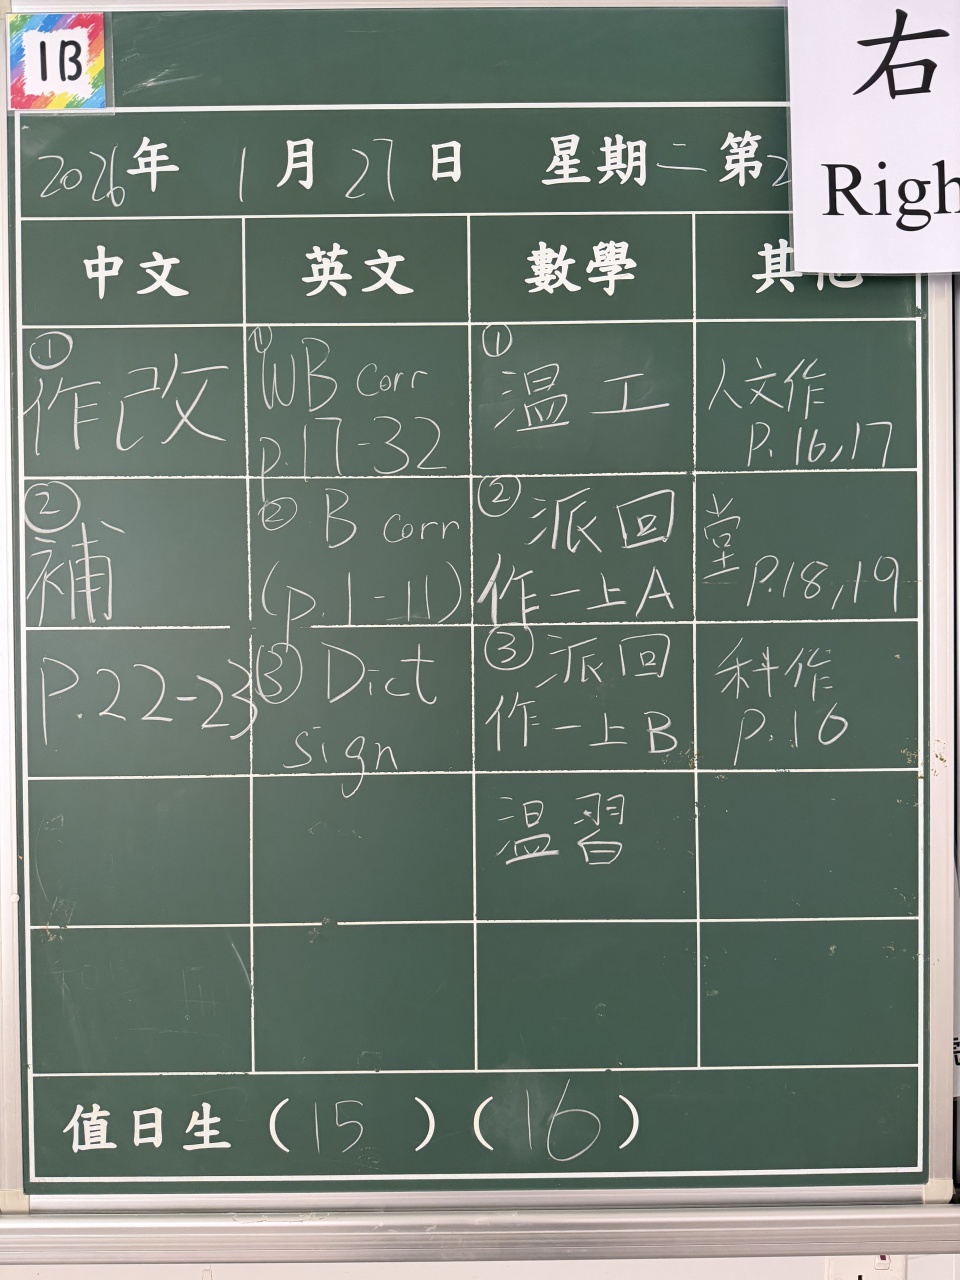 1B
右
Righ
2026年 1月27日 星期二 第2
中文 英文 數學 其他
① 作改
② 補
P.22-23
① WB corr
p.17-32
② B corr
(p.1-11)
③ Dict
sign
① 温工
② 派回
作一上A
③ 派回
作一上B
温習
人文作
P.16,17
堂
P.18,19
科作
P.10
值日生 (15) (16)